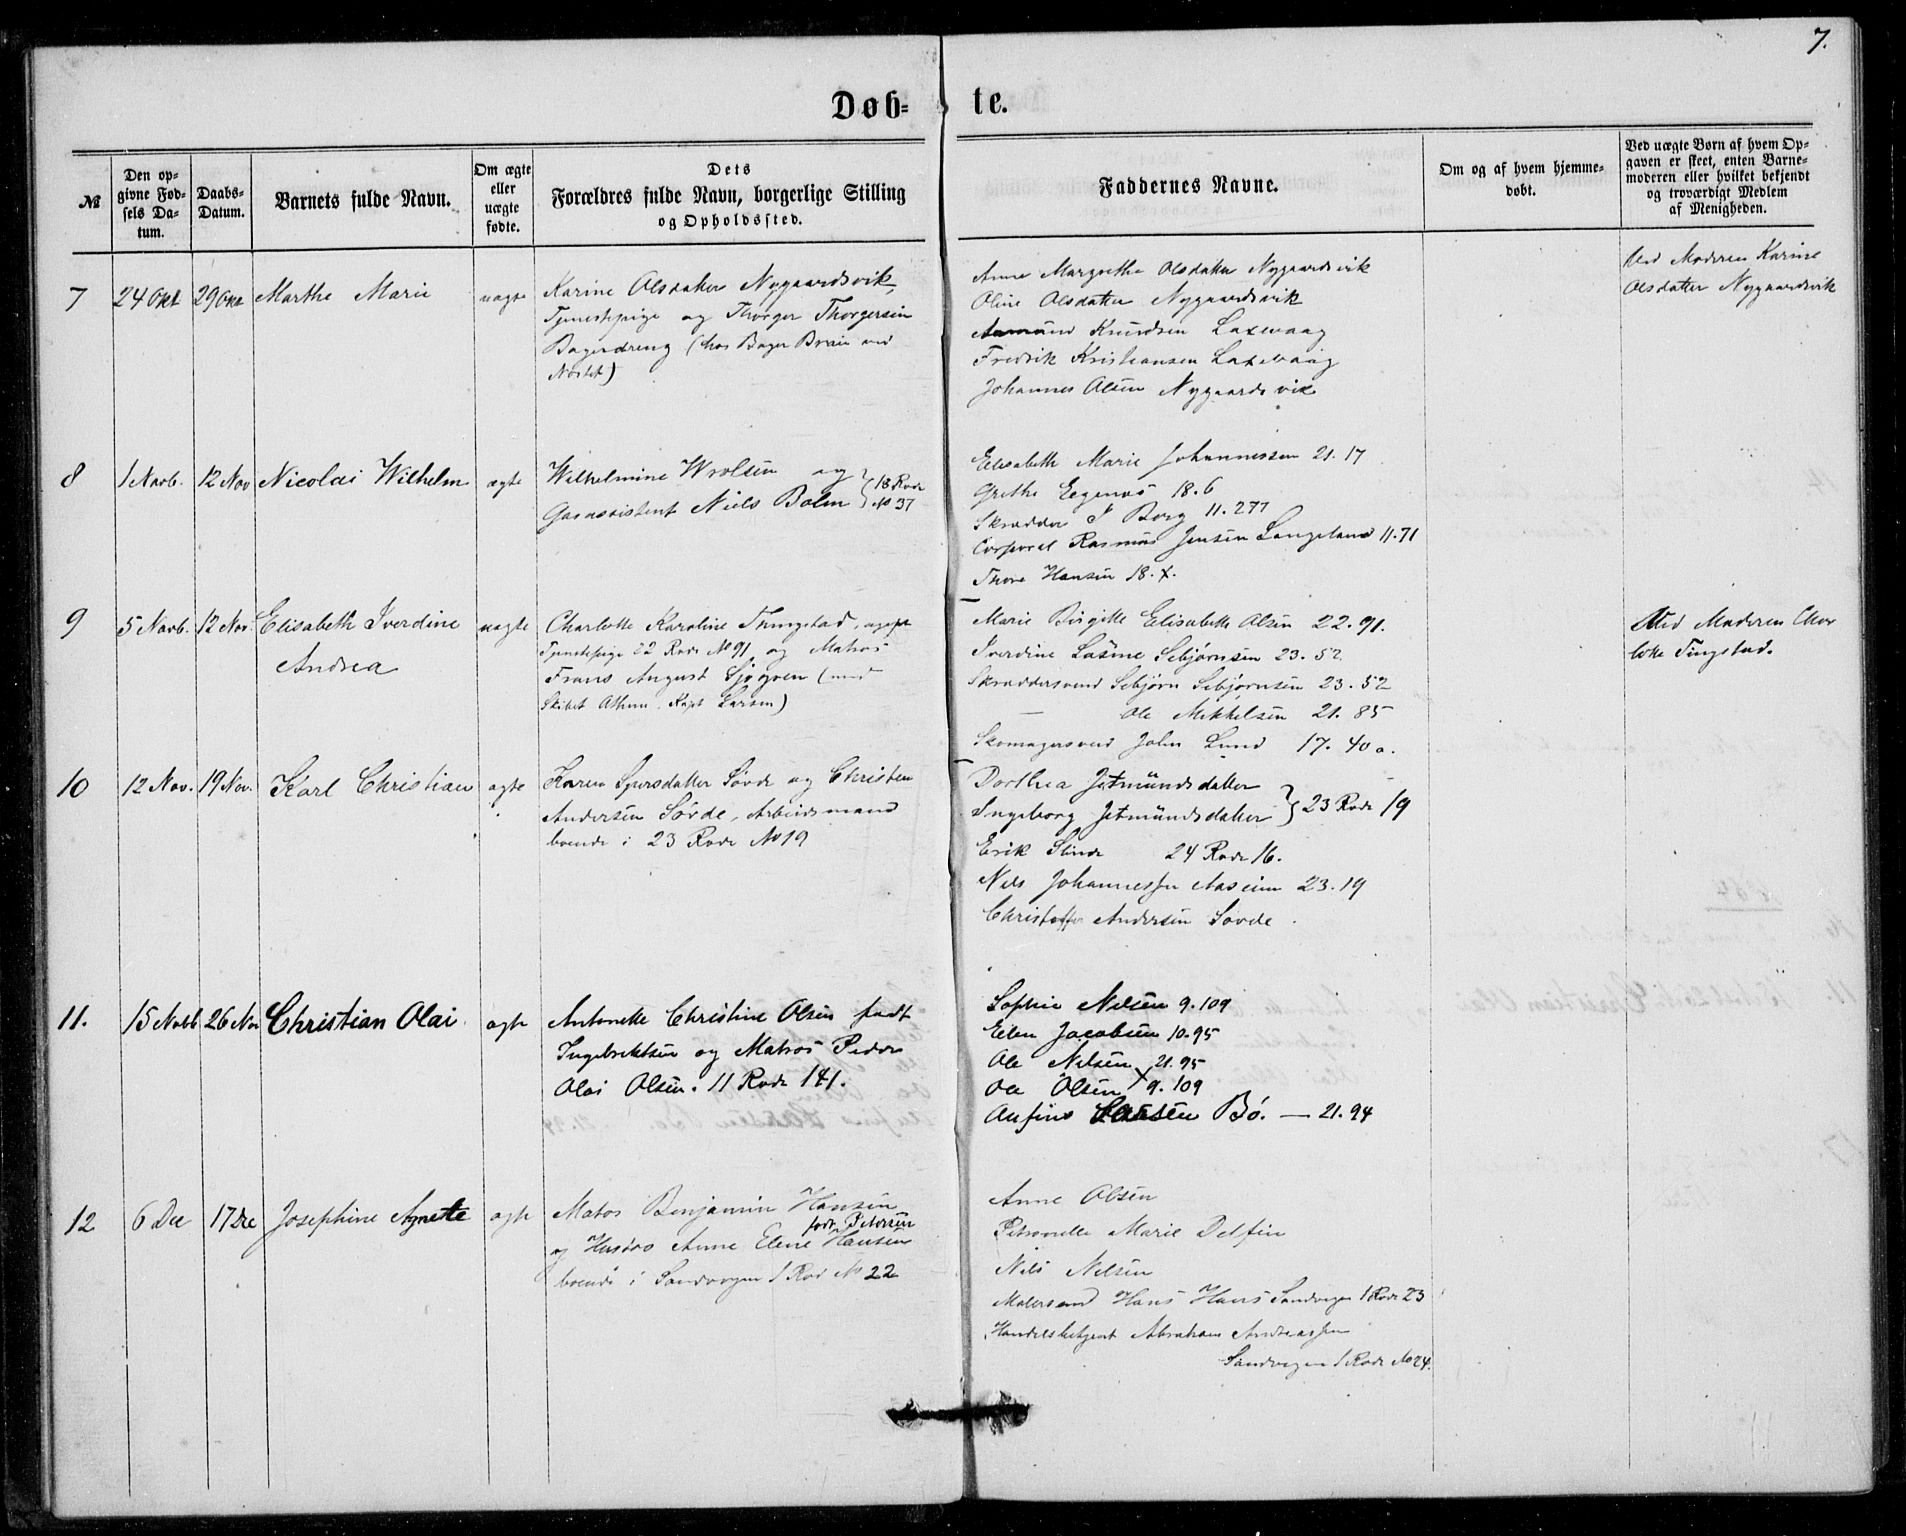 7.
Døb- te.
№
Den op-
givne Fød-
sels Da-
tum.
Daabs-
Datum.
Barnets fulde Navn.
Om ægte
eller
uægte
fødte.
Dets
Forældres fulde Navn, borgerlige Stilling
og Opholdssted.
Faddernes Navne.
Om og af hvem hjemme-
døbt.
Ved uægte Børn af hvem Op-
gaven er skeet, enten Barne-
moderen eller hvilket bekjendt
og troværdigt Medlem
af Menigheden.
7 24 Okt 29 Okt Marthe Marie uægte
Karine Olsdatter Nygaardsvik,
Tjenestepige og Thorger Thorgersen
Bagerdreng (hos Bager Brain ved
Nøstet)
Anne Margrethe Olsdatter Nygaardsvik
Oline Olsdatter Nygaardsvik
Aamund Knudsen Laxevaag
Fredrik Kristiansen Laxevaag
Johannes Olsen Nygaardsvik
Ved Moderen Karine
Olsdatter Nygaardsvik
8 1 Novb. 12 Nov Nicolai Wilhelm ægte
Wilhelmine Wrolsen og
Gasassistent Niels Bolm } 18 Rode № 37
Elisabeth Marie Johannessen 21. 17
Grethe Eegenæs 18. 6
Skrædder J Borg 11. 277
Corporal Rasmus Jensen Langeland 11. 71
Thore Hansen 18. X.
9 5 Novb. 12 Nov. Elisabeth Iverdine uægte
Andrea
Charlotte Karoline Thingstad, ugift
Tjenestepige 22 Rode № 91 og Matros
Frans August Sjøgren (med
Skibet Athene, Kapt Larsen)
Marie Birgitte Elisabeth Olsen 22. 91.
Iverdine Lasine Sebjørnsen 23. 52
Skræddersvend Sebjørn Sebjørnsen 23. 52
— Ole Mikkelsen 21. 85
Skomagersvend John Lund 17. 40 a.
Ved Moderen Char
lotte Tingstad.
10 12 Nov. 19 Nov. Karl Christian ægte
Karen Sjursdatter Søvde og Christen
Andersen Søvde, Arbeidsmand
boende i 23 Rode № 19
Dorthea Jetmundsdatter
Ingeborg Jetmundsdatter } 23 Rode 19
Erik Slinde 24 Rode 16.
Nils Johannessen Aaseim 23. 19
Christoffer Andersen Søvde.
11. 15 Novb 26 Nov Christian Olai. ægte
Antonette Christine Olsen født
Ingebrektsen og Matros Peder
Olai Olsen. 11 Rode 141.
Sophie Nilsen 9. 109
Elen Jacobsen 10. 95
Ole Nilsen 21. 95
Ole Olsen 9. 109
Anfind Larsen Bø. — 21. 94
12 6 Dec 17 Dec Josephine Agnete ægte
Matos Benjamin Hansen
født Petersen
og Hustro Anne Elene Hansen
boende i Sandvigen 1 Rod № 22
Anne Olsen
Petronelle Marie Delfin
Nils Nilsen
Malersvend Hans Hans Sandvigen 1 Rode 23
Handelsbetjent Abraham Andreassen
Sandvigen 1 Rode № 24.